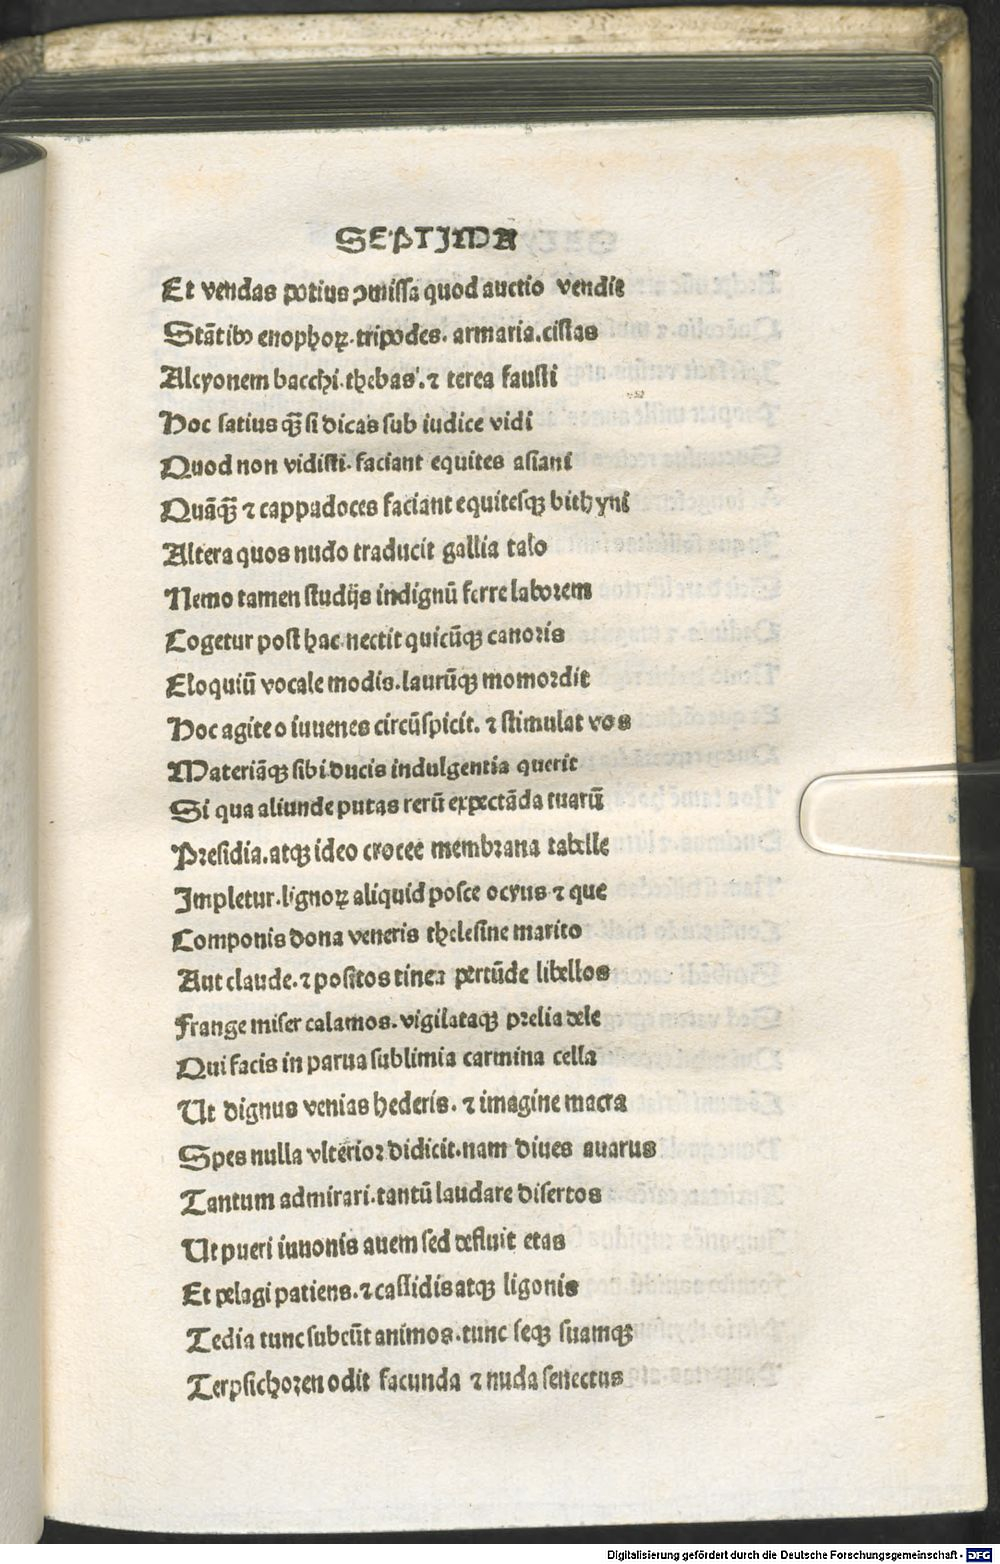 SEPTIMA
Et vendas potius ↄmissa quod auctio vendit
Stãtibꝰ enophoꝝ. tripodes. armaria. cistas
Alcyonem bacchi. thebas. ⁊ terea fausti
Hoc satius q̃ꝫ si dicas sub iudice vidi
Quod non vidisti. faciant equites asiani
Quãq̃ꝫ ⁊ cappadoces faciant equitesqꝫ bithyni
Altera quos nudo traducit gallia talo
Nemo tamen studijs indignũ ferre laborem
Cogetur post hac nectit quicũqꝫ canoris
Eloquiũ vocale modis. laurũqꝫ momordit
Hoc agite o iuuenes circũspicit. ⁊ stimulat vos
Materiãqꝫ sibi ducis indulgentia querit
Si qua aliunde putas rerũ expectãda tuarũ
Presidia. atqꝫ ideo crocee membrana tabelle
Impletur. lignoꝝ aliquid posce ocyus ⁊ que
Componis dona veneris thelesine marito
Aut claude. ⁊ positos tinea pertũde libellos
Frange miser calamos. vigilataqꝫ prelia dele
Qui facis in parua sublimia carmina cella
Ut dignus venias hederis. ⁊ imagine macra
Spes nulla vlterior didicit. nam diues auarus
Tantum admirari. tantũ laudare disertos
Ut pueri iunonis auem sed defluit etas
Et pelagi patiens. ⁊ cassidis atqꝫ ligonis
Tedia tunc subeũt animos. tunc seqꝫ suamqꝫ
Terpsichoren odit facunda ⁊ nuda senectus
Digitalisierung gefördert durch die Deutsche Forschungsgemeinschaft - DFG